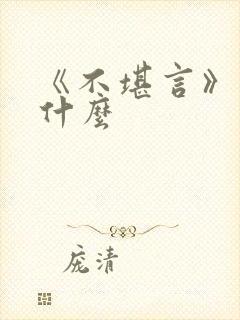 《不堪言》
什麼
庞清